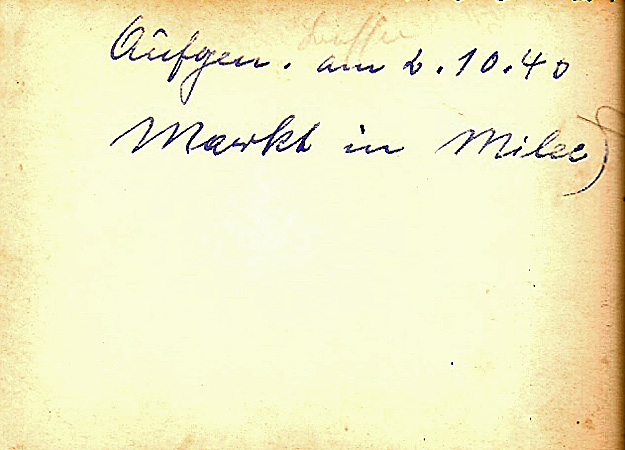 Aufgen. am 2.10.40
Markt in Milec